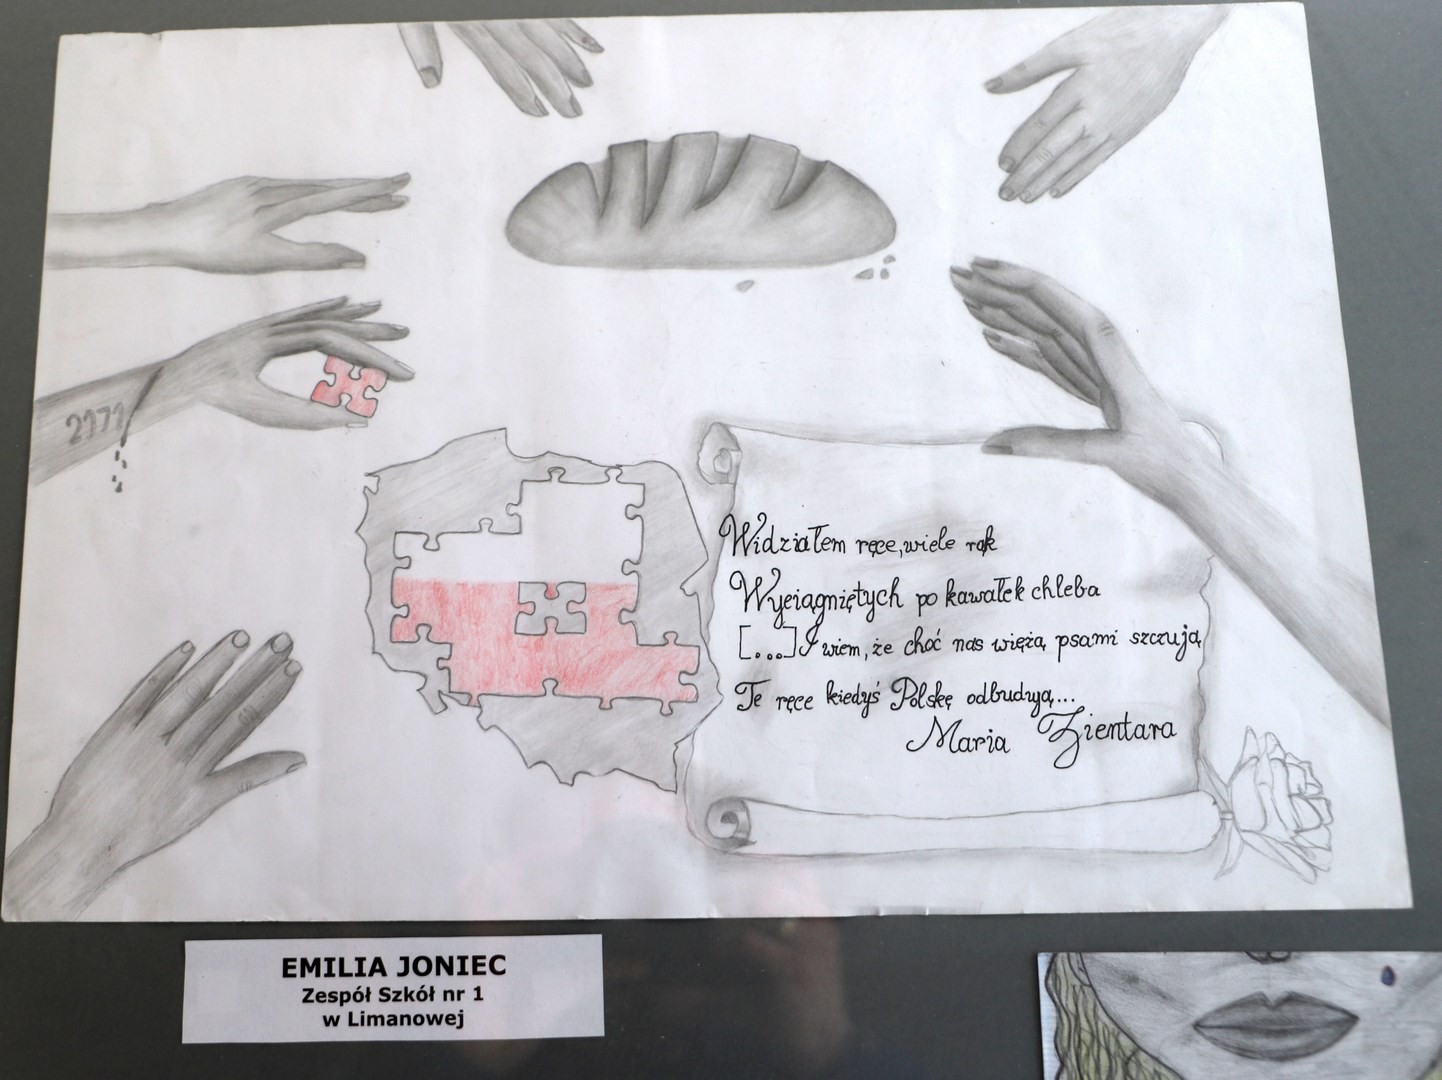 2171
Widziałem ręce, wiele rąk
Wyciągniętych po kawałek chleba
[...] I wiem, że choć nas więżą psami szczują
Te ręce kiedyś Polskę odbudują...
Maria Zientara
EMILIA JONIEC
Zespół Szkół nr 1
w Limanowej